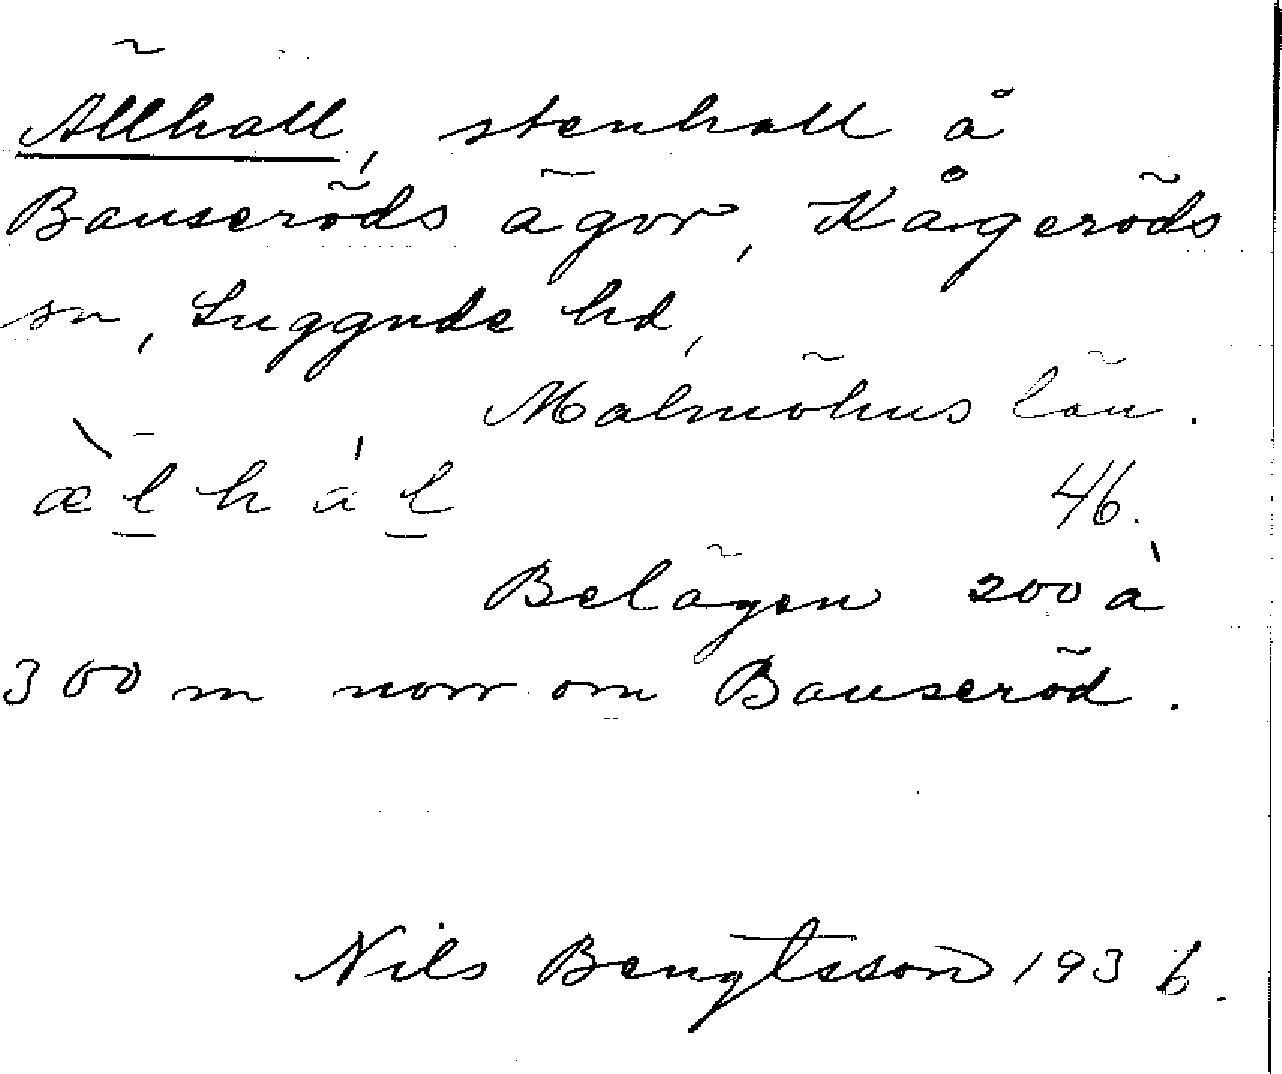 Ällhall, stenhall å
Bauseröds ägor, Kågeröds
sn, Luggude hd,
Malmöhus län.
æ̀l̲hál̲ 46.
Belägen 200 à
300 m norr om Bauseröd.
Nils Bengtsson 1936.